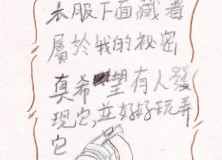 衣服下面藏着
屬於我的秘密
真希望有人發
現它,並好好玩弄
它